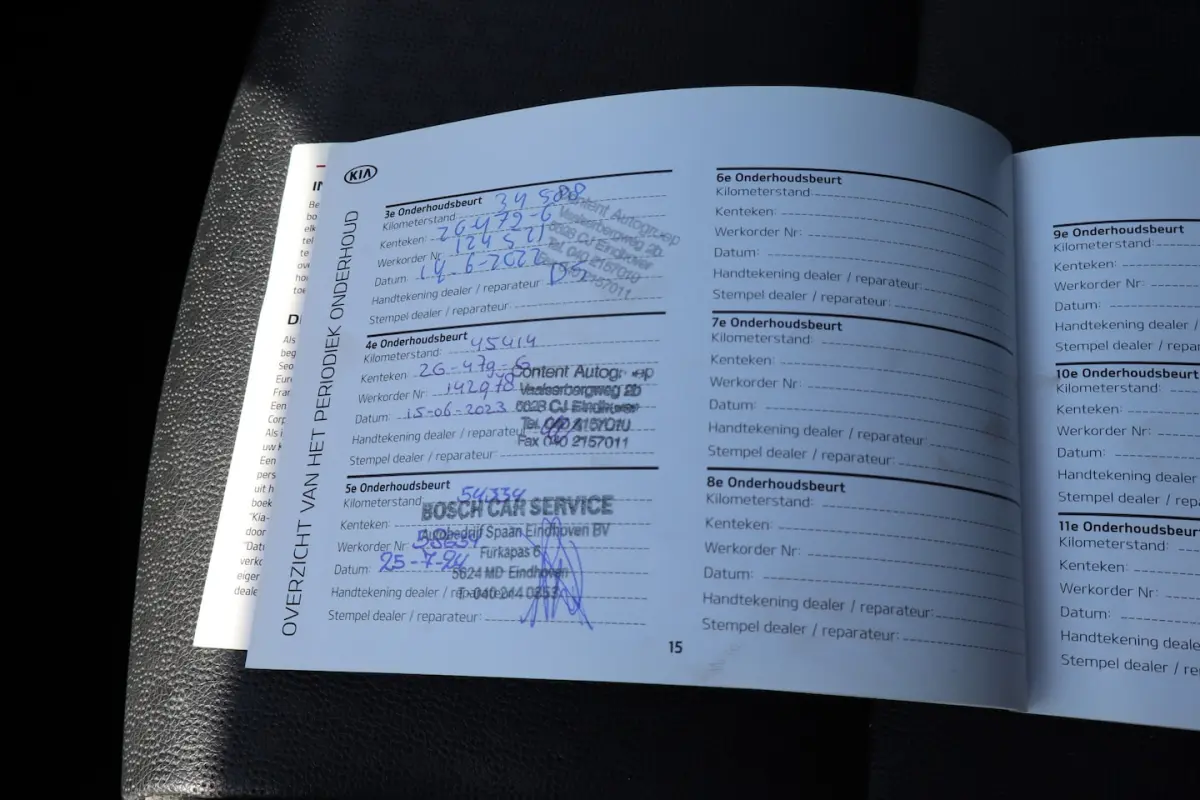 KIA
OVERZICHT VAN HET PERIODIEK ONDERHOUD
3e Onderhoudsbeurt
Kilometerstand: 34 588
Kenteken: 26-479-6
Werkorder Nr: 124521
Datum: 14-6-2022
Handtekening dealer / reparateur
Stempel dealer / reparateur:
Content Autogroep
Vaalserbergweg 2b
5628 CJ Eindhoven
Tel. 040 2157010
2157011
4e Onderhoudsbeurt
Kilometerstand: 45414
Kenteken: 26-479-6
Werkorder Nr: 142978
Datum: 15-06-2023
Handtekening dealer / reparateur
Stempel dealer / reparateur:
Content Autogroep
Vaalserbergweg 2b
5628 CJ Eindhoven
Tel. 040 2157010
Fax 040 2157011
5e Onderhoudsbeurt
Kilometerstand
Kenteken:
Werkorder Nr:
Datum: 25-7-24
Handtekening dealer / reparateur
Stempel dealer / reparateur:
BOSCH CAR SERVICE
Autobedrijf Spaan Eindhoven BV
Furkapas 6
5624 MD Eindhoven
T. 040 244 0353
15
6e Onderhoudsbeurt
Kilometerstand:
Kenteken:
Werkorder Nr:
Datum:
Handtekening dealer / reparateur:
Stempel dealer / reparateur:
7e Onderhoudsbeurt
Kilometerstand:
Kenteken:
Werkorder Nr:
Datum:
Handtekening dealer / reparateur:
Stempel dealer / reparateur:
8e Onderhoudsbeurt
Kilometerstand:
Kenteken:
Werkorder Nr:
Datum:
Handtekening dealer / reparateur:
Stempel dealer / reparateur:
9e Onderhoudsbeurt
Kilometerstand:
Kenteken:
Werkorder Nr:
Datum:
Handtekening dealer /
Stempel dealer / repar
10e Onderhoudsbeurt
Kilometerstand:
Kenteken:
Werkorder Nr:
Datum:
Handtekening dealer
Stempel dealer / rep
11e Onderhoudsbeur
Kilometerstand:
Kenteken:
Werkorder Nr:
Datum:
Handtekening deale
Stempel dealer / re